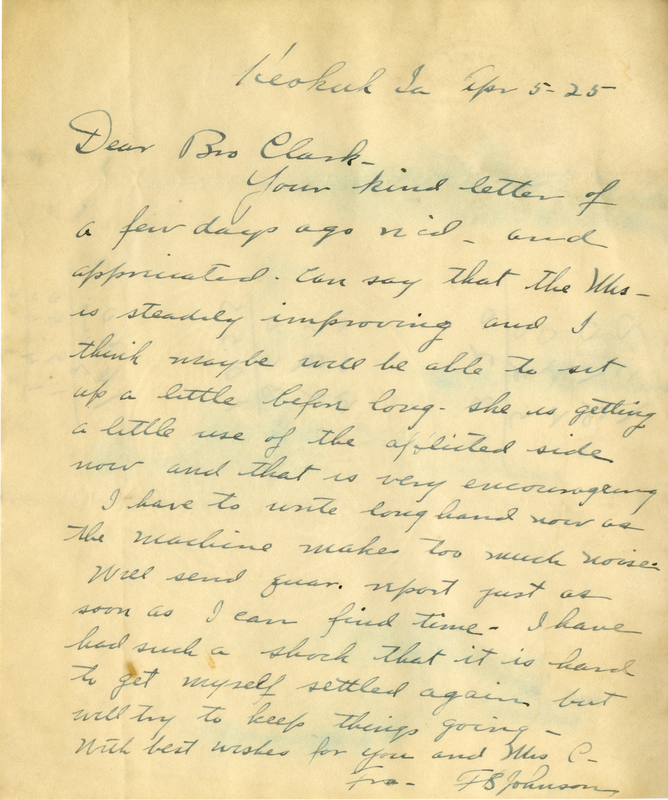 Keokuk Ia Apr 5-25
Dear Bro Clark-
Your kind letter of
a few days ago rc'd - and
appriciated. Can say that the Mrs -
is steadily improving and I
think maybe will be able to sit
up a little before long - she is getting
a little use of the afflicted side
now and that is very encouraging
I have to write longhand now as
the machine makes too much noise.
Will send quar. report just as
soon as I can find time - I have
had such a shock that it is hard
to get myself settled again but
will try to keep things going -
With best wishes for you and Mrs C-
Fra - FS Johnson